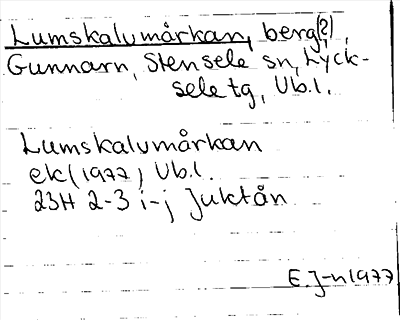 Lumskalumårkan, berg(?),
Gunnarn, Stensele sn, Lyck-
sele tg, Vb.l.
Lumskalumårkan
ek (1977) Vb.l.
23H 2-3 i-j Juktån
E. J-n 1977